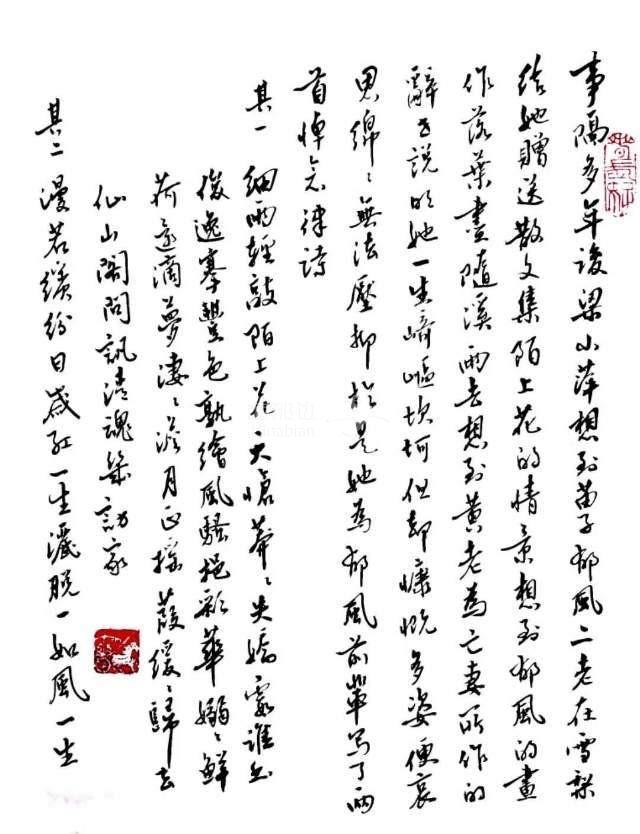 事隔多年後梁小萍想到苗子郁風二老在雪梨
給她贈送散文集陌上花的情景想到郁風的畫
作落葉盡隨溪雨去想到黃老為亡妻所作的
辭世說明她一生崎嶇坎坷但却慷慨多姿便哀
思綿綿無法壓抑於是她為郁風前輩寫了兩
首悼念律詩
其一 細雨輕敲陌上花大愴莽莽失嬌霞誰出
俊逸搴豐色孰繪風騷挹彩華嫋嫋鮮
荷意滴夢淒淒淡月正搖葭緩緩歸去
仙山閣問訊清魂幾訪家
其二 漫若繽紛日歲紅一生灑脫一如風一生